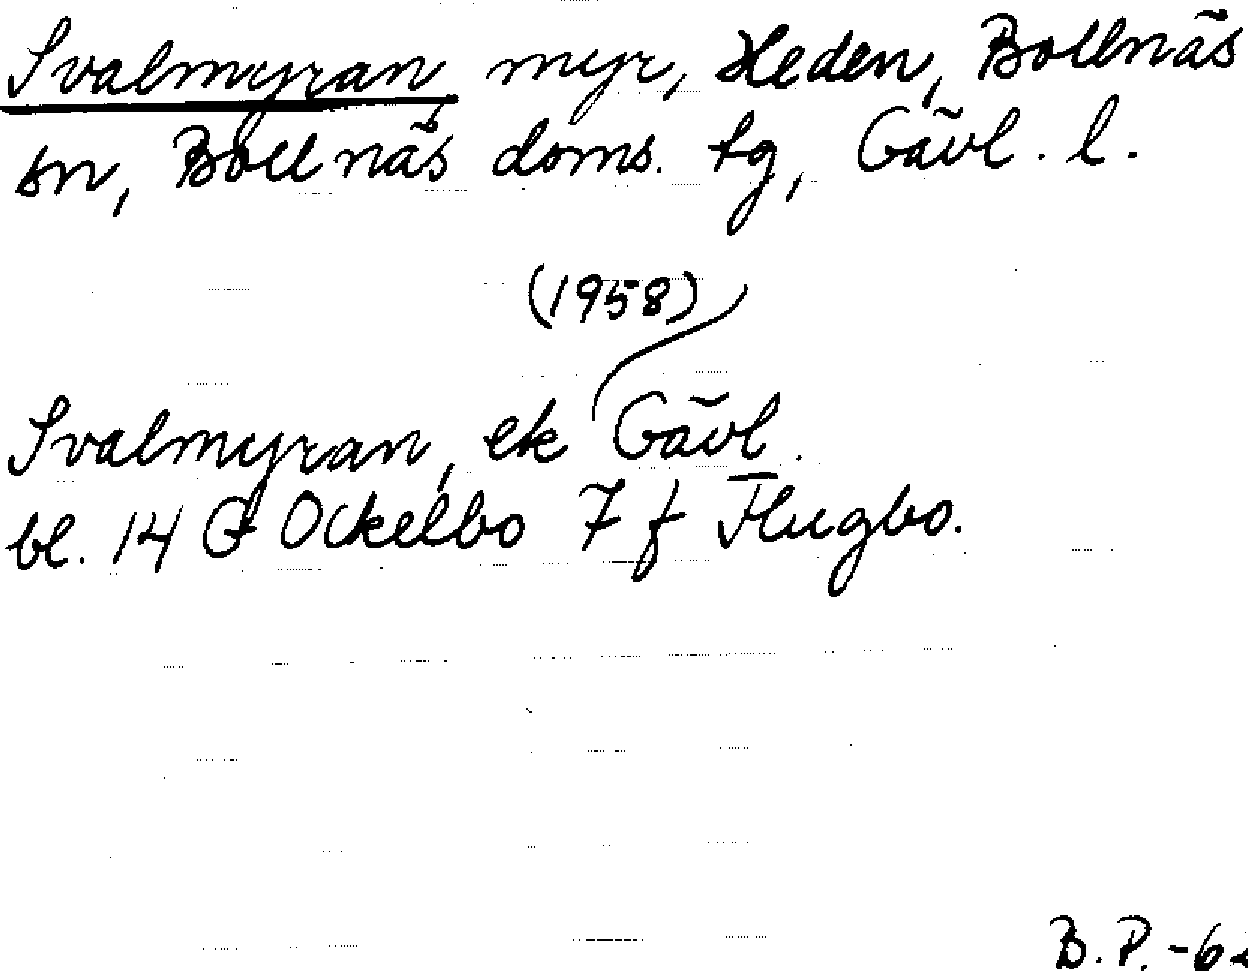 Svalmyran myr, Heden, Bollnäs
sn, Bollnäs doms. tg, Gävl. l.
(1958)
Svalmyran, ek Gävl.
bl. 14 G Ockelbo 7 f Flugbo.
B. P. -6